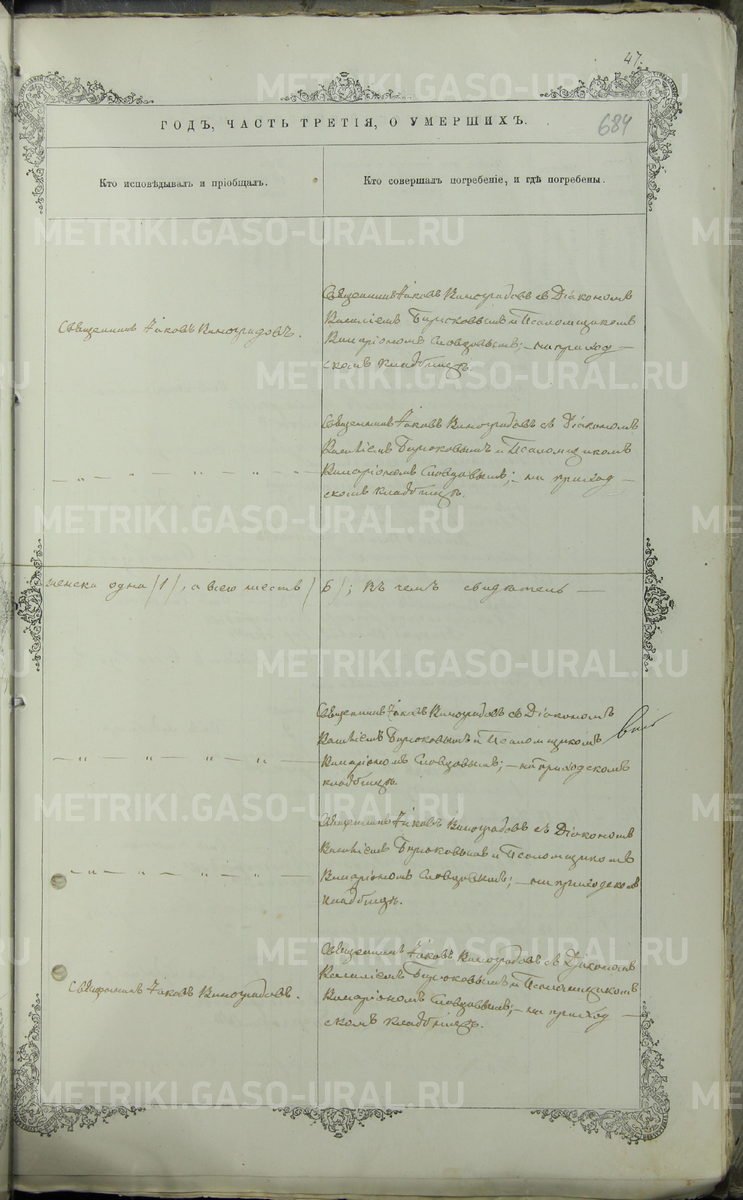 47.
684
ГОДЪ, ЧАСТЬ ТРЕТІЯ, О УМЕРШИХЪ.
Кто исповѣдывалъ и пріобщалъ.
Кто совершалъ погребеніе, и гдѣ погребены.
Священникъ Іаковъ Виноградовъ.
Священникъ Іаковъ Виноградовъ съ Діакономъ
Василіемъ Бирюковымъ и Псаломщикомъ
Иларіономъ Словцовымъ; – на приход–
скомъ кладбищѣ.
– „ – „ – „ – „ –
Священникъ Іаковъ Виноградовъ съ Діакономъ
Василіемъ Бирюковымъ и Псаломщикомъ
Иларіономъ Словцовымъ; – на приход–
скомъ кладбищѣ.
женска одна /1/, а всего шесть /6/; въ чемъ свидѣтель –
– „ – „ – „ – „ –
Священникъ Іаковъ Виноградовъ съ Діакономъ
Василіемъ Бирюковымъ и Псаломщикомъ
Иларіономъ Словцовымъ; – на приходскомъ
кладбищѣ.
– „ – „ – „ – „ –
Священникъ Іаковъ Виноградовъ съ Діакономъ
Василіемъ Бирюковымъ и Псаломщикомъ
Иларіономъ Словцовымъ; – на приходскомъ
кладбищѣ.
Священникъ Іаковъ Виноградовъ.
Священникъ Іаковъ Виноградовъ съ Діакономъ
Василіемъ Бирюковымъ и Псаломщикомъ
Иларіономъ Словцовымъ; – на приход–
скомъ кладбищѣ.
METRIKI.GASO-URAL.RU